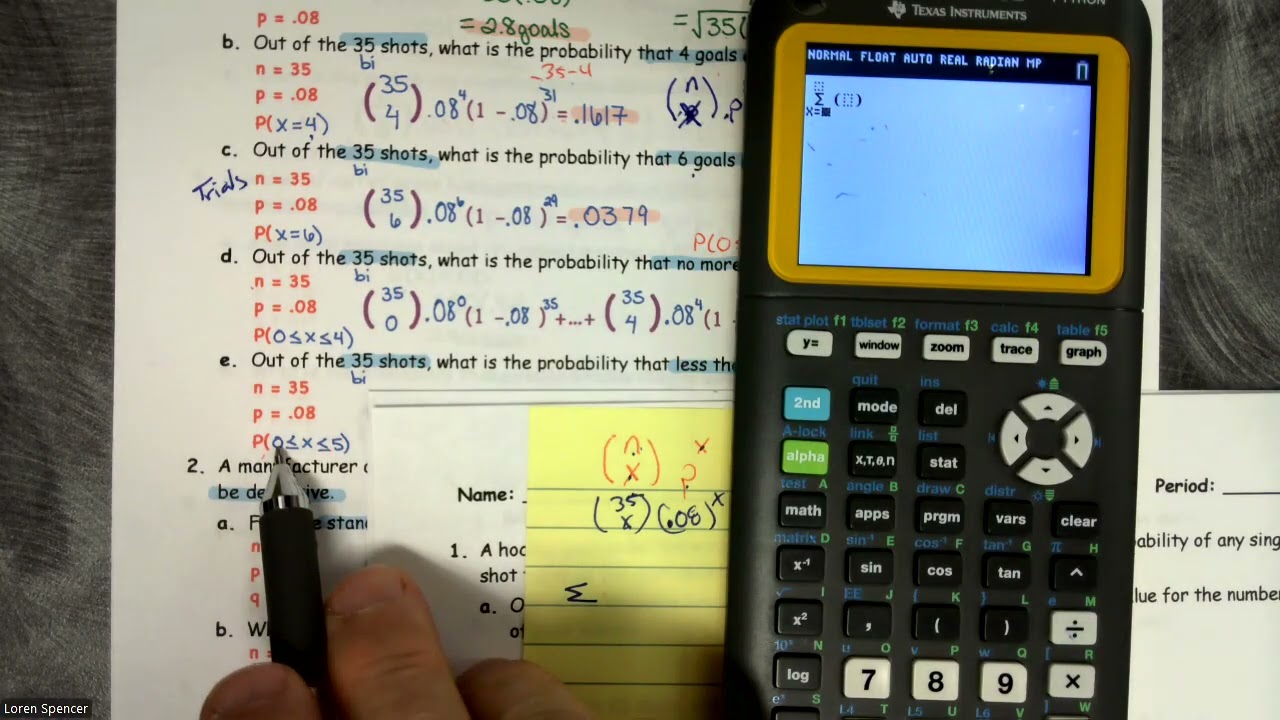 p = .08
= 2.8 goals
= √35(
b. Out of the 35 shots, what is the probability that 4 goals
bi
n = 35
p = .08
P(x=4)
35-4
(35 4).08⁴(1 - .08)³¹ = .1617
(n x).p
c. Out of the 35 shots, what is the probability that 6 goals
bi
Trials
n = 35
p = .08
P(x=6)
(35 6).08⁶(1 - .08)²⁹ = .0379
P(0
d. Out of the 35 shots, what is the probability that no more
bi
n = 35
p = .08
P(0≤x≤4)
(35 0).08⁰(1 - .08)³⁵+...+(35 4).08⁴(1
e. Out of the 35 shots, what is the probability that less the
bi
n = 35
p = .08
P(0≤x≤5)
2. A manufacturer
be de ive.
a. F
stan
n
p
q
b. W
n =
Name:
1. A hoc
shot
a. O
of
(n x) pˣ
(35 x)(.08)ˣ
Σ
Period:
ability of any sing
lue for the numbe
TEXAS INSTRUMENTS
PYTHON
NORMAL FLOAT AUTO REAL RADIAN MP
Σ ( )
X=
stat plot f1 tblset f2 format f3 calc f4 table f5
y= window zoom trace graph
quit ins
2nd mode del
A-lock link list
alpha x,T,θ,n stat
test A angle B draw C distr
math apps prgm vars clear
matrix D sin⁻¹ E cos⁻¹ F tan⁻¹ G π H
x⁻¹ sin cos tan ^
√ I EE J { K } L e M
x² , ( ) ÷
10ˣ N u O v P w Q [ R
log 7 8 9 ×
eˣ S L4 T L5 U L6 V ] W
Loren Spencer